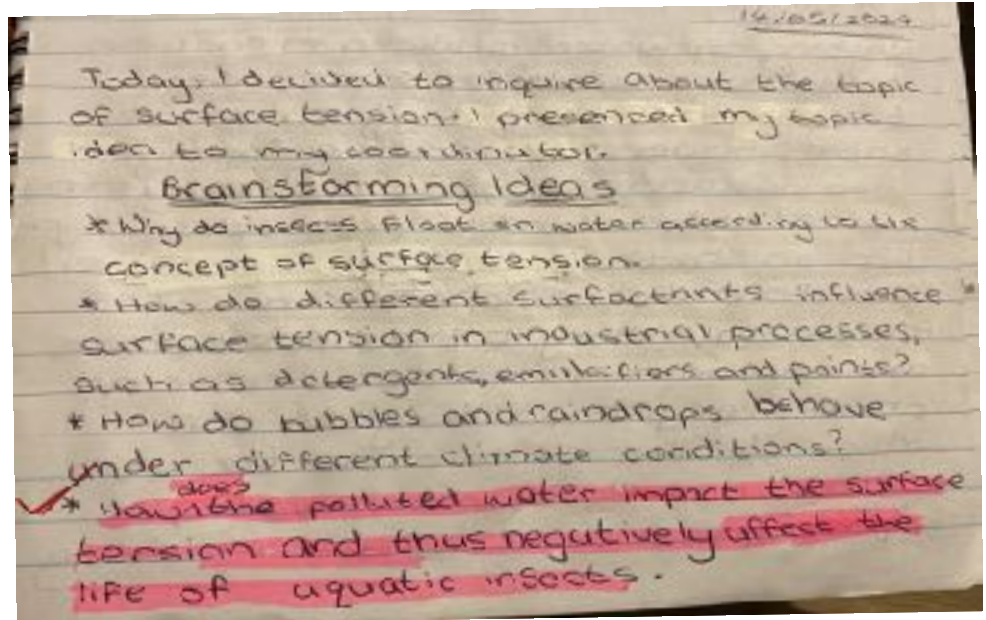 14/05/2024
Today, I decided to inquire about the topic
of surface tension. I presented my topic
idea to my coordinator.
Brainstorming Ideas
* Why do insects float on water according to the
concept of surface tension.
* How do different surfactants influence
surface tension in industrial processes,
such as detergents, emulsifiers and paints?
* How do bubbles and raindrops behave
under different climate conditions?
does
* How the polluted water impact the surface
tension and thus negatively affect the
life of aquatic insects.